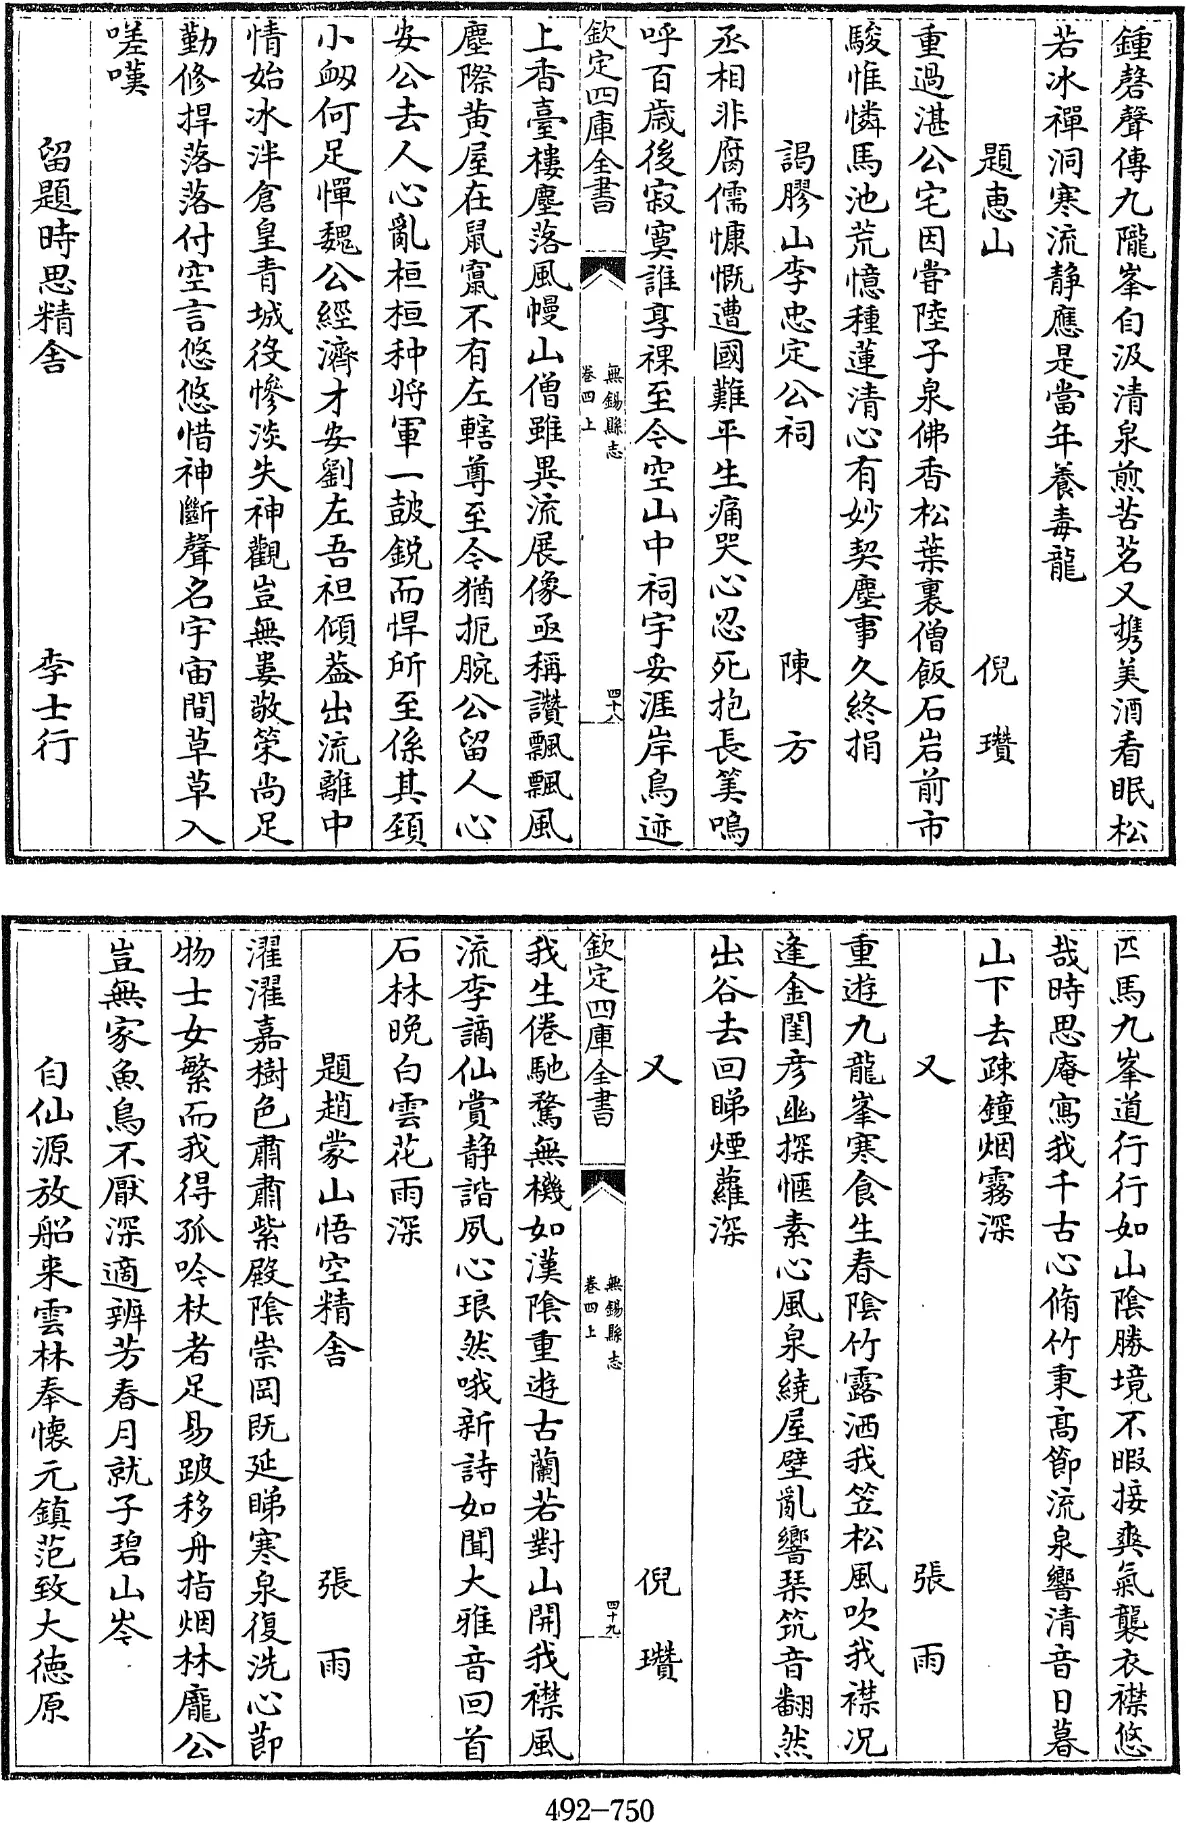 鍾磬聲傳九隴峯自汲清泉煎苦茗又携美酒看眠松
若冰禪洞寒流静應是當年養毒龍
題惠山 倪瓚
重過湛公宅因嘗陸子泉佛香松葉裏僧飯石岩前市
駿惟憐馬池荒憶種蓮清心有妙契塵事久終捐
謁膠山李忠定公祠 陳方
丞相非腐儒慷慨遭國難平生痛哭心忍死抱長筭嗚
呼百歳後寂寞誰享祼至今空山中祠宇妥涯岸鳥迹
欽定四庫全書 無錫縣志 卷四上 四十八
上香臺樓塵落風幔山僧雖異流展像亟稱讚飄飄風
塵際黄屋在鼠竄不有左轄尊至今猶扼腕公留人心
安公去人心亂桓桓种将軍一鼓鋭而悍所至係其頸
小衂何足憚魏公經濟才安劉左吾袒傾葢出流離中
情始冰泮倉皇青城役慘淡失神觀豈無婁敬策尚足
勤修捍落落付空言悠悠惜神斷聲名宇宙間草草入
嗟嘆
留題時思精舍 李士行
匹馬九峯道行行如山隂勝境不暇接爽氣襲衣襟悠
哉時思庵寫我千古心脩竹秉髙節流泉響清音日暮
山下去疎鐘烟霧深
又 張雨
重遊九龍峯寒食生春隂竹露洒我笠松風吹我襟况
逢金閨彦幽探愜素心風泉繞屋壁亂響琹筑音翻然
出谷去回睇煙蘿深
又 倪瓚
欽定四庫全書 無錫縣志 卷四上 四十九
我生倦馳騖無機如漢隂重遊古蘭若對山開我襟風
流李謫仙賞静諧夙心琅然哦新詩如聞大雅音回首
石林晚白雲花雨深
題趙蒙山悟空精舍 張雨
濯濯嘉樹色肅肅紫殿隂崇岡既延睇寒泉復洗心節
物士女繁而我得孤吟杖者足易跛移舟指烟林龎公
豈無家魚鳥不厭深適辨芳春月就子碧山岑
自仙源放船来雲林奉懷元鎮范致大徳原
492-750